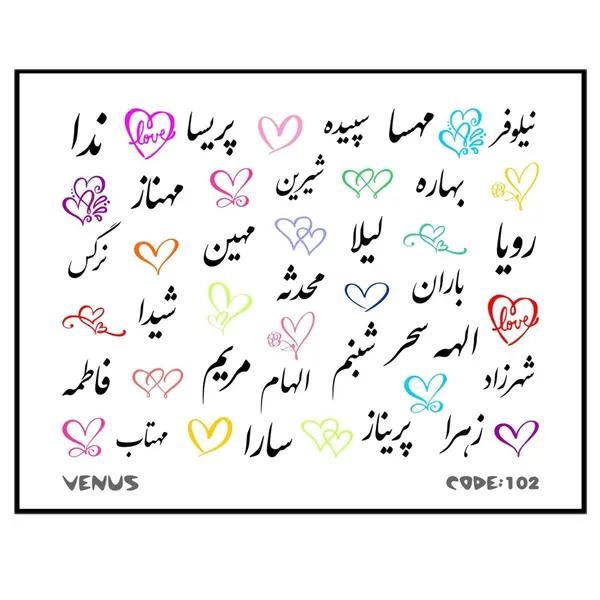 نیلوفر love مهسا سپیده پریسا ندا
بهاره شیرین مهناز
رویا لیلا مهین نرگس
باران محدثه شیدا
love الهه سحر شبنم
شهرزاد الهام مریم فاطمه
زهرا پریناز سارا مهتاب
VENUS CODE:102